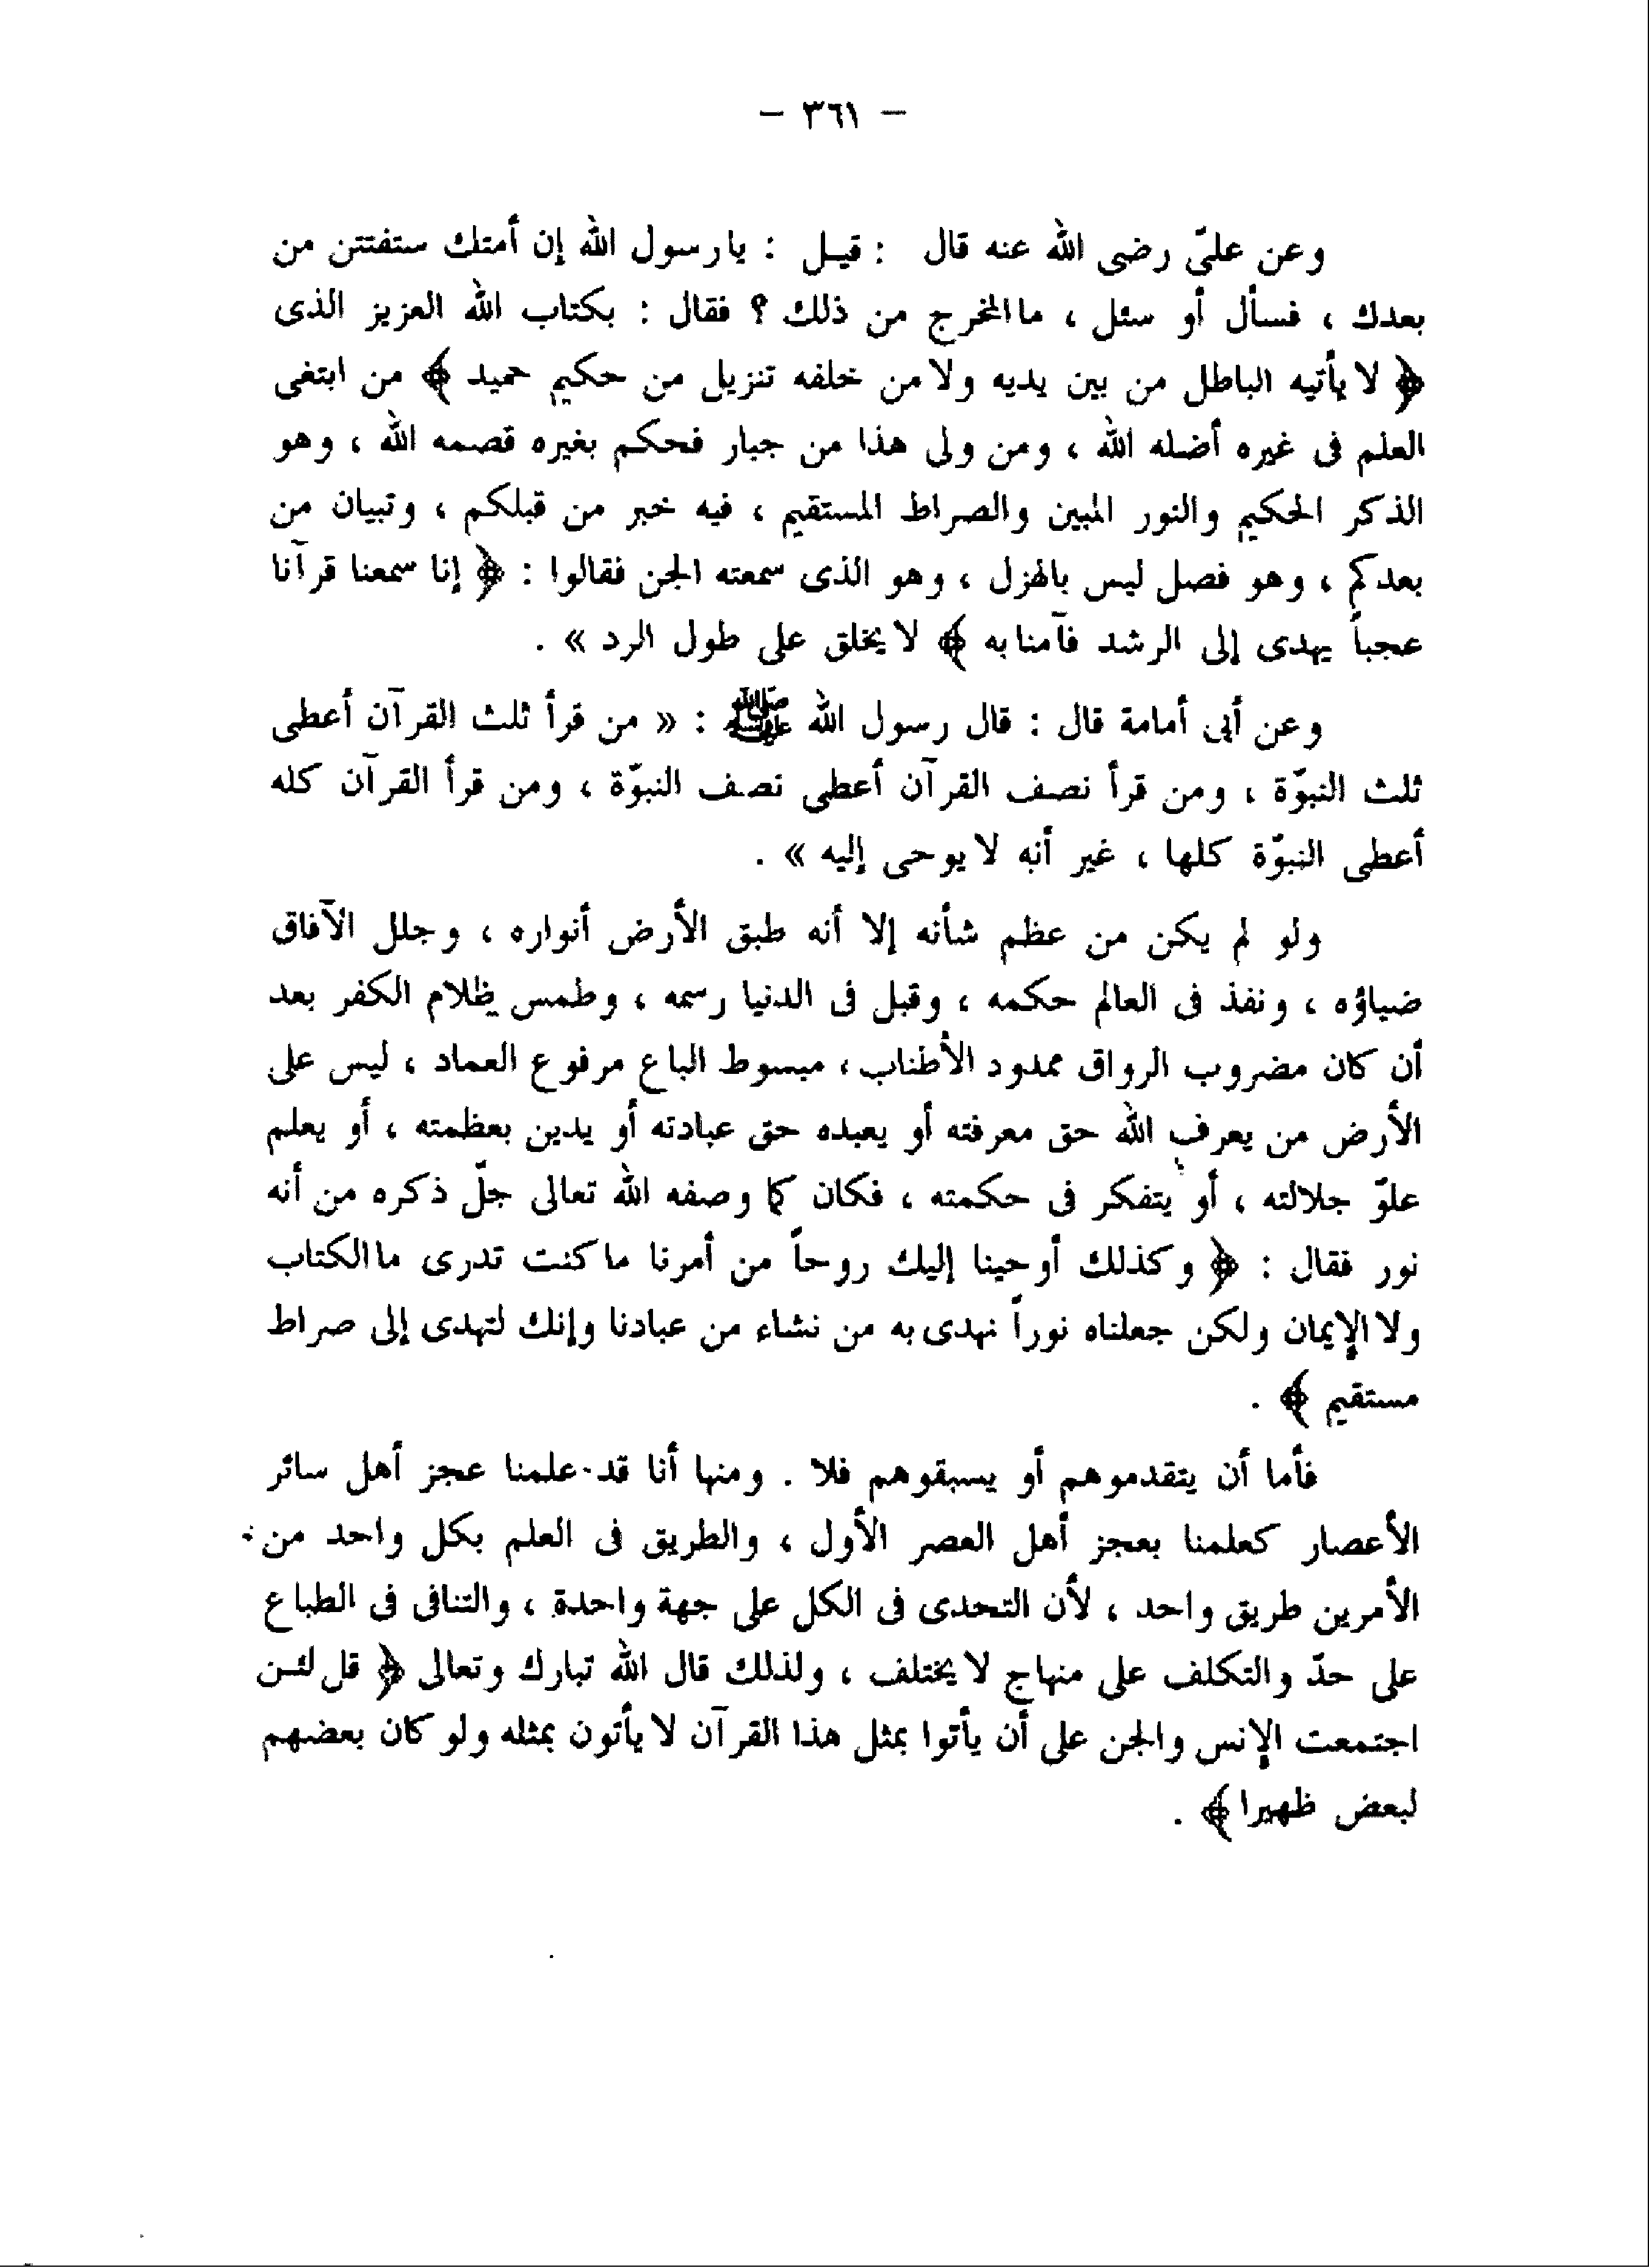 – ٣٦١ –
وعن علىّ رضى الله عنه قال : قيـل : يا رسول الله إن أمتك ستفتتن من
بعدك ، فسأل أو سئل ، ما المخرج من ذلك ؟ فقال : بكتاب الله العزيز الذى
﴿ لا يأتيه الباطل من بين يديه ولا من خلفه تنزيل من حكيم حميد ﴾ من ابتغى
العلم فى غيره أضله الله ، ومن ولى هذا من جبار فحكم بغيره قصمه الله ، وهو
الذكر الحكيم والنور المبين والصراط المستقيم ، فيه خبر من قبلكم ، وتبيان من
بعدكم ، وهو فصل ليس بالهزل ، وهو الذى سمعته الجن فقالوا : ﴿ إنا سمعنا قرآنا
عجباً يهدى إلى الرشد فآمنا به ﴾ لا يخلق على طول الرد » .
وعن أبى أمامة قال : قال رسول الله ﷺ : « من قرأ ثلث القرآن أعطى
ثلث النبوّة ، ومن قرأ نصف القرآن أعطى نصف النبوّة ، ومن قرأ القرآن كله
أعطى النبوّة كلها ، غير أنه لا يوحى إليه » .
ولو لم يكن من عظم شأنه إلا أنه طبق الأرض أنواره ، وجلل الآفاق
ضياؤه ، ونفذ فى العالم حكمه ، وقبل فى الدنيا رسمه ، وطمس ظلام الكفر بعد
أن كان مضروب الرواق ممدود الأطناب ، مبسوط الباع مرفوع العماد ، ليس على
الأرض من يعرف الله حق معرفته أو يعبده حق عبادته أو يدين بعظمته ، أو يعلم
علوّ جلالته ، أو يتفكر فى حكمته ، فكان كما وصفه الله تعالى جلّ ذكره من أنه
نور فقال : ﴿ وكذلك أوحينا إليك روحاً من أمرنا ما كنت تدرى ما الكتاب
ولا الإيمان ولكن جعلناه نوراً نهدى به من نشاء من عبادنا وإنك لتهدى إلى صراط
مستقيم ﴾ .
فأما أن يتقدموهم أو يسبقوهم فلا . ومنها أنا قد علمنا عجز أهل سائر
الأعصار كعلمنا بعجز أهل العصر الأول ، والطريق فى العلم بكل واحد من
الأمرين طريق واحد ، لأن التحدى فى الكل على جهة واحدة ، والتنافى فى الطباع
على حدّ والتكلف على منهاج لا يختلف ، ولذلك قال الله تبارك وتعالى ﴿ قل لئـن
اجتمعت الإنس والجن على أن يأتوا بمثل هذا القرآن لا يأتون بمثله ولو كان بعضهم
لبعض ظهيرا ﴾ .